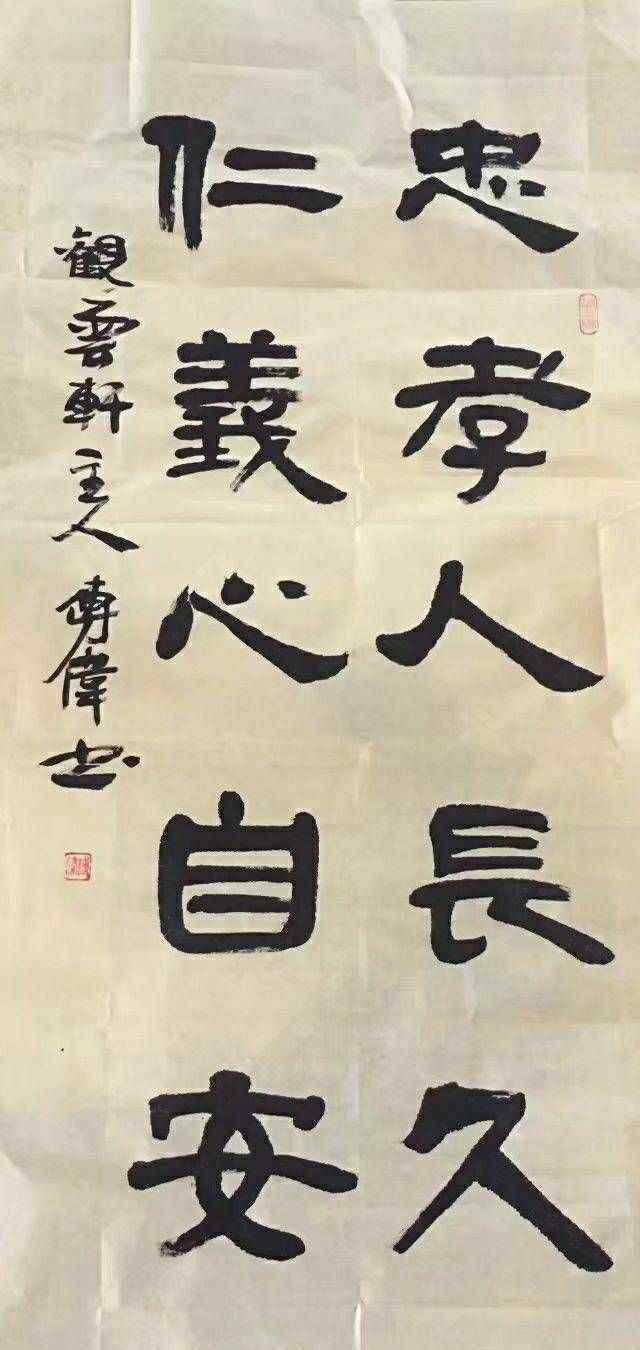 忠孝人長久
仁義心自安
觀雲軒主人傅偉書